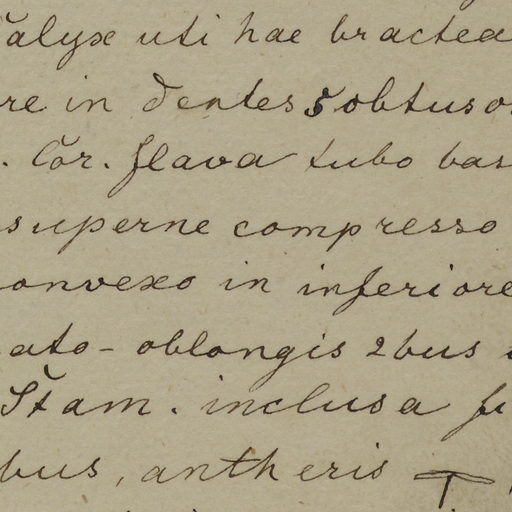 Calyx uti hae bractea
re in dentes 5 obtuso
. Cor. flava tubo bas
superne compresso
convexo in inferiore
ato-oblongis 2bus
Stam. inclusa fi
bus, antheris